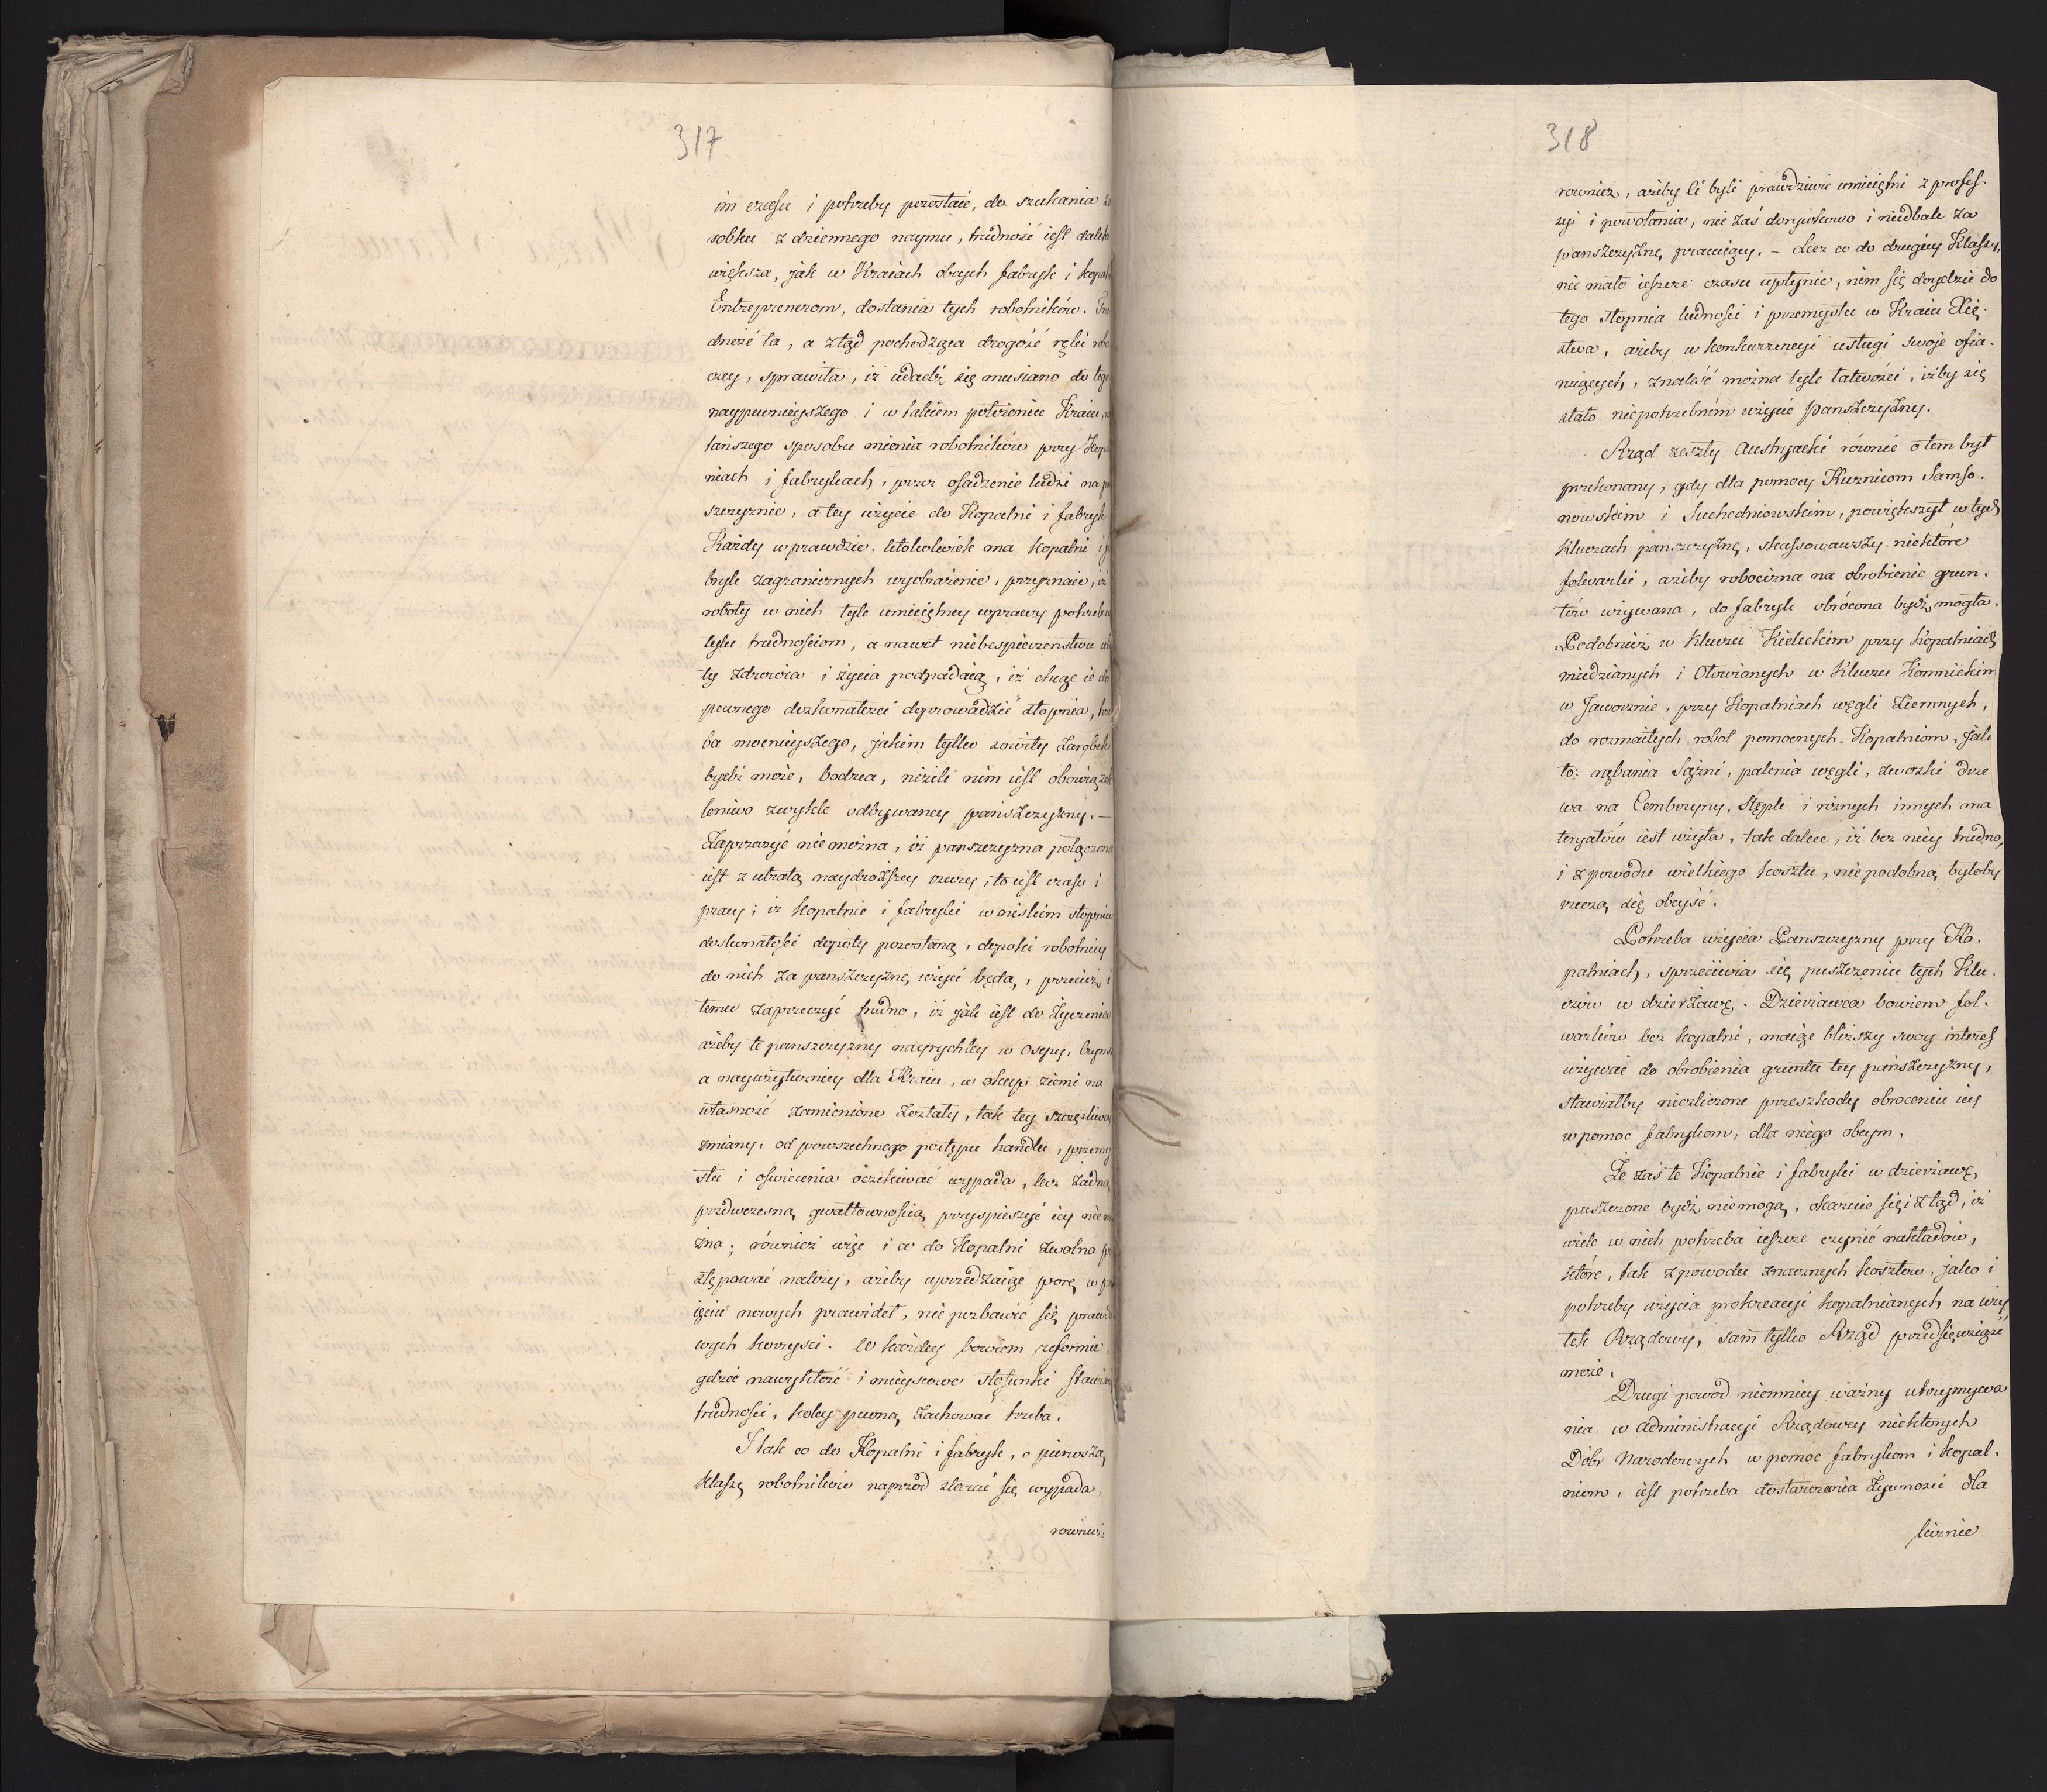 317
im czasu i potrzeby pozostaie, do szukania
robku z dziennego naymu, trudność iest daleko
większa, jak w Kraiach obcych fabryk i kopal
Entreprenerom, dostania tych robotników. Tru
dność ta, a ztąd pochodząca drogość ręki robo
czey, sprawiła, iż udadź się musiano do tego
naypewnieyszego i w takiem położeniu Kraiu,
tańszego sposobu mienia robotników przy Kopal
niach i fabrykach, przez osadzenie ludzi na pa
szczyznie, a tey użycie do Kopalni i fabryk
Każdy wprawdzie, ktokolwiek ma kopalni i fa
bryk zagranicznych wyobrażenie, przyznaie, iż
roboty w nich tyle umieiętney wprawy potrzebu
tylu trudnościom, a nawet niebespieczeństwu
ty zdrowia i życia podpadaią, iż chcąc ie do
pewnego doskonałości doprowadzić stopnia, trze
ba mocnieyszego, jakim tylko sowity zarobek
bydź może, bodzca, niżeli nim iest obowiązek
leniwo zwykle odbywaney pańszczyzny. —
Zaprzeczyć nie można, iż panszczyzna połączona
iest z utratą naydroższey rzeczy, to iest czasu i
pracy; iż kopalnie i fabryki w niskim stopniu
doskonałości dopóty pozostaną, dopóki robotnicy
do nich za panszczyznę użyci będą, przecież i
temu zaprzeczyć trudno, iż jak iest do życzenia
ażeby te panszczyzny nayrychley w osepy, czynsz
a nayużyteczniey dla Kraiu, w okup ziemi na
własność zamienione zostały, tak tey szczęśliwey
zmiany, od powszechnego postępu handlu, przemy
słu i oświecenia oczekiwać wypada, lecz żadną
przedwczesną gwałtownością przyspieszyć iey nie mo
żna; również więc i co do Kopalni zwolna po
stępować należy, ażeby uprzedzaiąc porę w przy
ięciu nowych prawideł, nie pozbawić się prawdzi
wych korzyści. W każdey bowiem reformie
gdzie nawykłość i mieyscowe stosunki stawiaią
trudności, koley pewną zachować trzeba.
I tak co do Kopalni i fabryk, o pierwszą
klassę robotników naprzód starać się wypada,
rownież
318
rownież, ażeby ci byli prawdziwie umieiętni z profes-
syi i powołania, nie zaś dorywkowo i niedbale za
panszczyznę pracuiący. — Lecz co do drugiey Klassy,
nie mało ieszcze czasu upłynie, nim się doydzie do
tego stopnia ludności i przemysłu w Kraiu Xię-
stwa, ażeby w konkurrencyi usługi swoje ofia-
ruiących, znaleść można tyle łatwości, iżby się
stało niepotrzebnem użycie pańszczyzny.
Rząd zeszły Austryacki równie o tem był
przekonany, gdy dla pomocy Kuznicom Samso-
nowskim i Suchedniowskim, powiększył w tych
kluczach panszczyznę, skassowawszy niektóre
folwarki, ażeby robocizna na obrobienie grun-
tów używana, do fabryk obrócona bydź mogła.
Podobnież w Kluczu Kieleckim przy kopalniach
miedzianych i Ołowianych w Kluczu Komnickim
w Jaworznie, przy Kopalniach węgli Ziemnych,
do rozmaitych robot pomocnych Kopalniom, jak
to: rąbania Sążni, palenia węgli, zwozki drze
wa na Cembryny, Stęple i rżnych innych ma
teryałów iest użyta, tak dalece, iż bez niey trudno,
i z powodu wielkiego kosztu, niepodobną byłoby
rzeczą się obeyść.
Potrzeba użycia Panszczyzny przy Ko-
palniach, sprzeciwia się puszczeniu tych Klu-
czów w dzierżawę. Dzierżawca bowiem fol-
warków bez kopalni, maiąc bliższy swoy interes
używać do obrobienia gruntu tey pańszczyzny,
stawiałby niezliczone przeszkody obroceniu iey
w pomoc fabrykom, dla niego obcym.
Że zaś te Kopalnie i fabryki w dzierżawę
puszczone bydź niemogą, okazuie się i ztąd, iż
wiele w nich potrzeba ieszcze czynić nakładów,
które, tak z powodu znacznych kosztów, jako i
potrzeby użycia protreacyi kopalnianych na uży
tek Rządowy, sam tylko Rząd przedsięwziąść
może.
Drugi powod niemniey ważny utrzymywa
nia w administracyi Rządowey niektorych
Dóbr Narodowych w pomoc fabrykom i kopal-
niom, iest potrzeba dostarczania Żywności dla
licznie